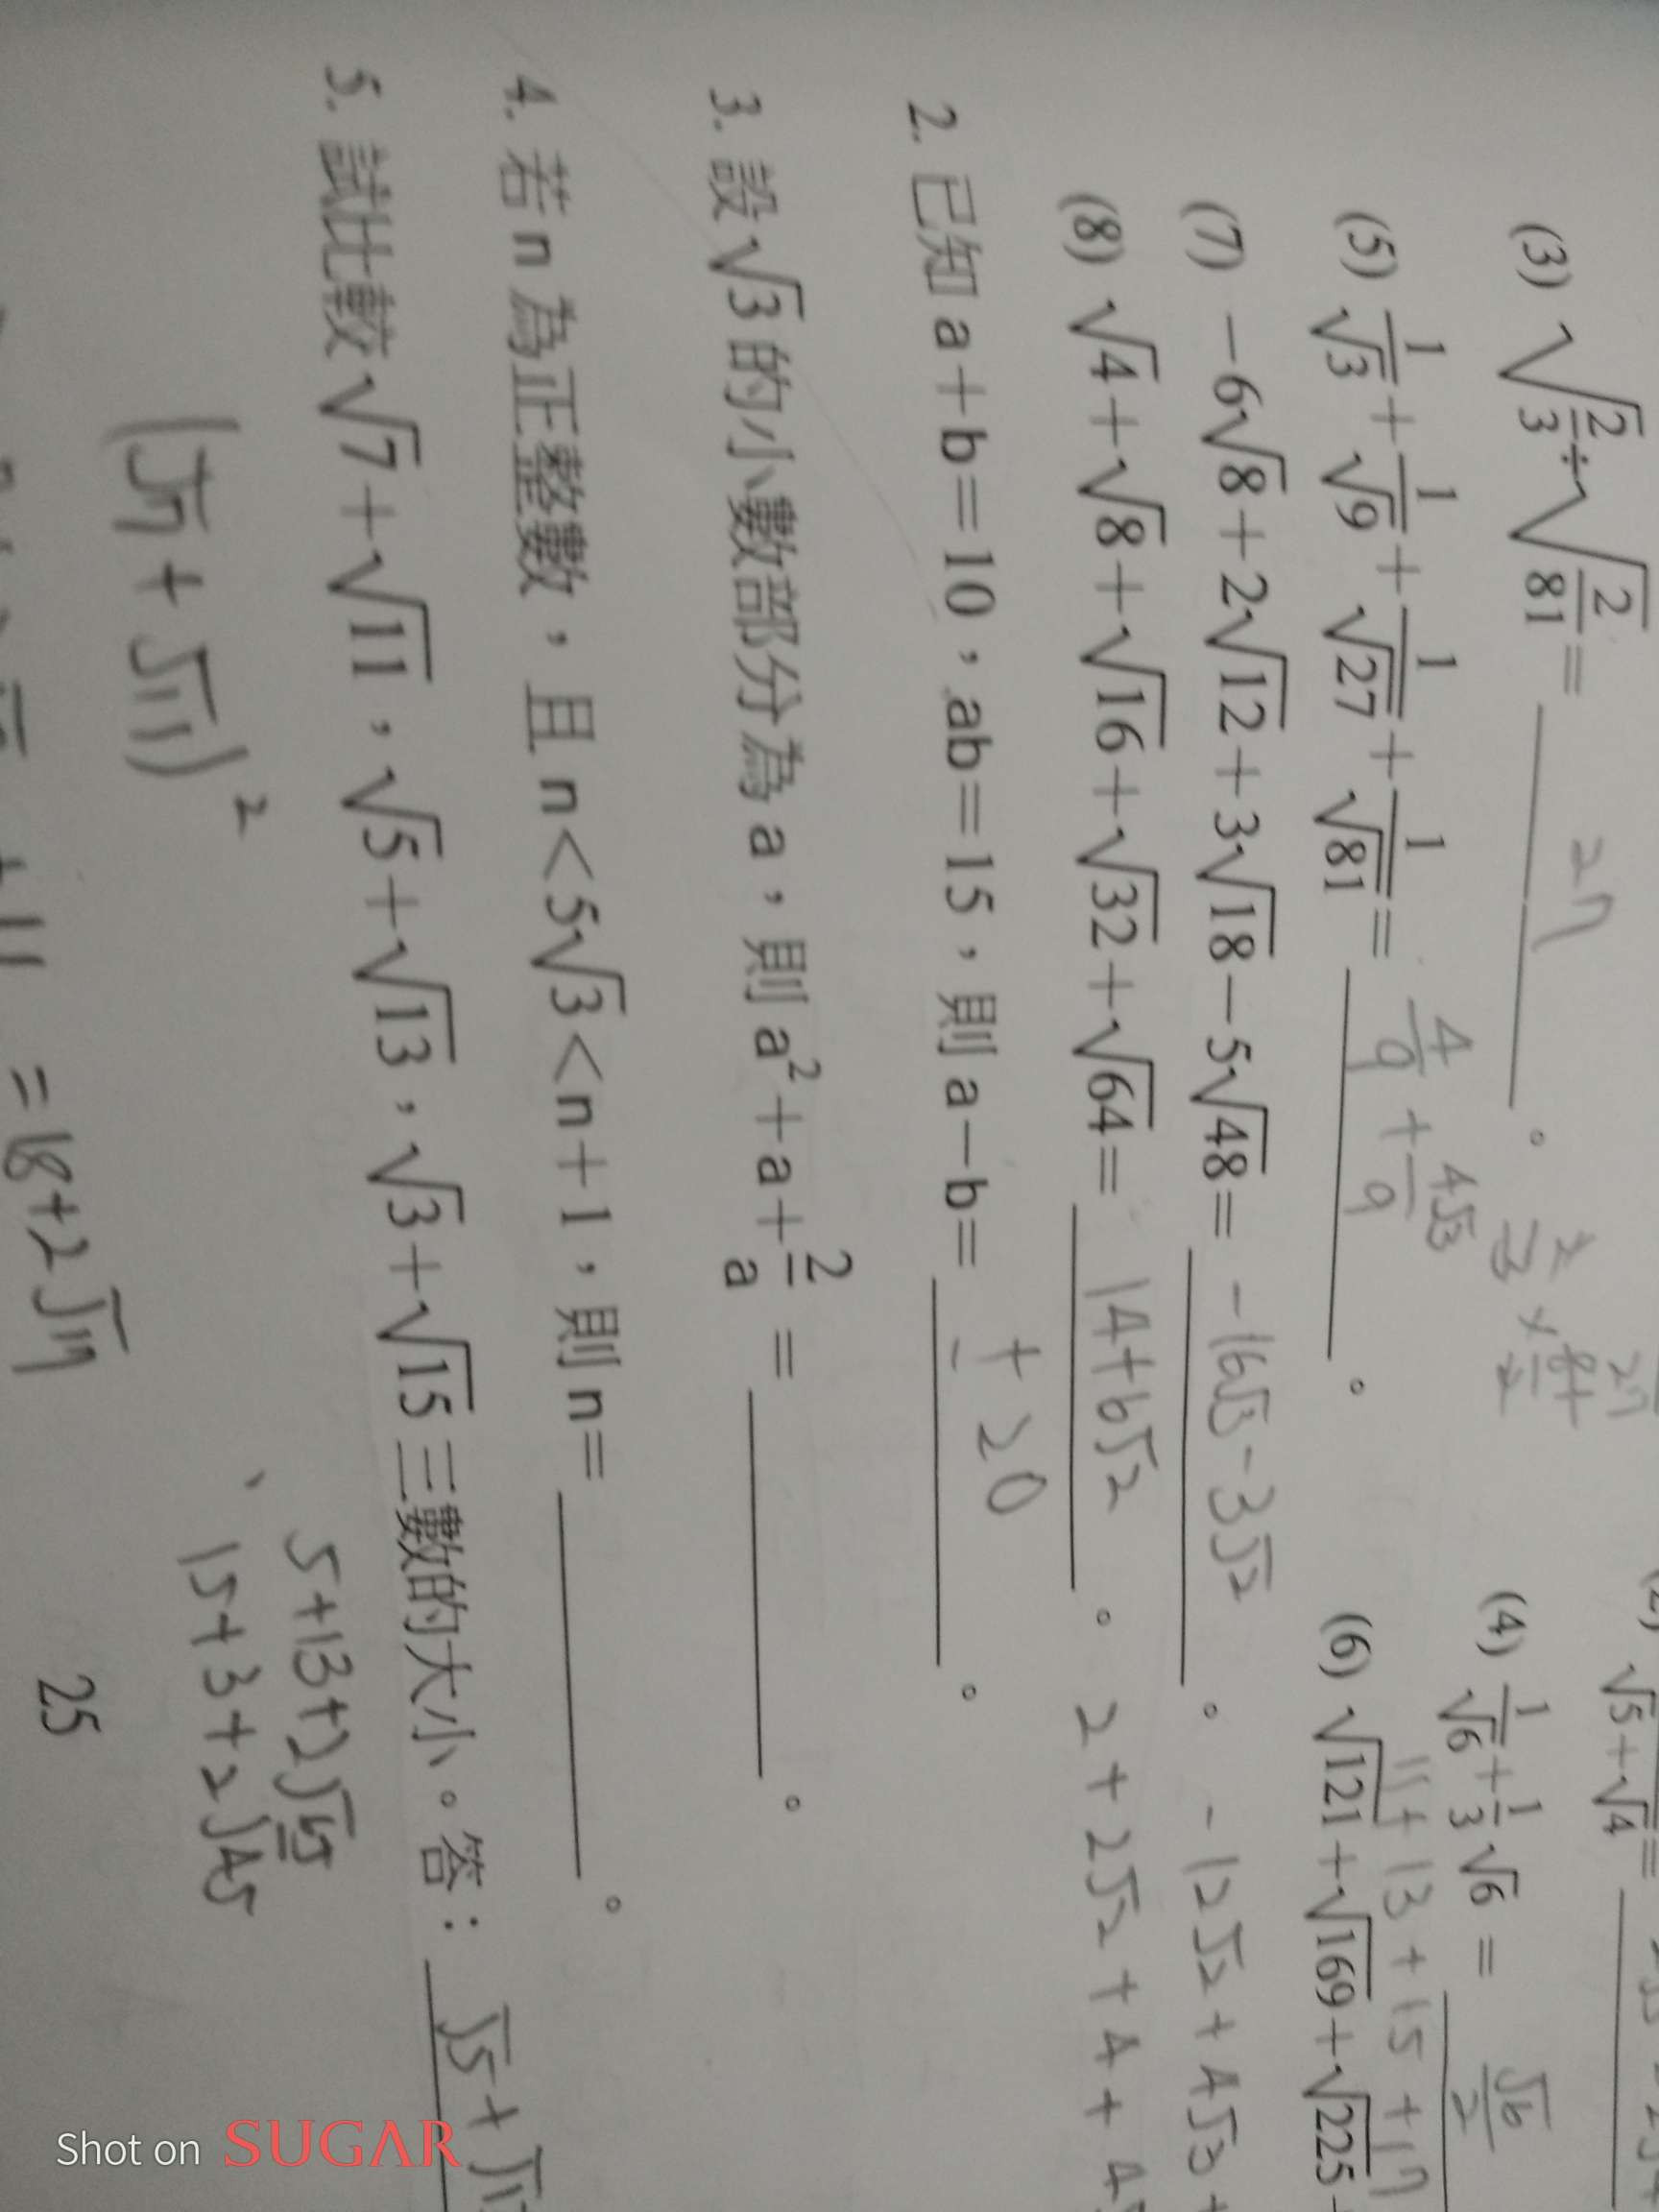 √5+√4=
(3) √(2/3)÷√(2/81)= 27 。
(4) 1/√6+1/3√6= √6/2
(5) 1/√3+1/√9+1/√27+1/√81= 4/9+4√3/9 。
(6) √121+√169+√225
11+13+15+17
(7) -6√8+2√12+3√18-5√48= -16√3-3√2 。 -12√2+4√3+
(8) √4+√8+√16+√32+√64= 14+6√2 。 2+2√2+4+4
2. 已知a+b=10,ab=15,則a-b= ±20 。
3. 設√3的小數部分為a,則a²+a+2/a= 。
4. 若n為正整數,且n<5√3<n+1,則n= 。
5. 試比較√7+√11,√5+√13,√3+√15三數的大小。答: √5+
(√7+√11)²
5+13+2√65
15+3+2√45
+11 =18+2√77
25
Shot on SUGAR